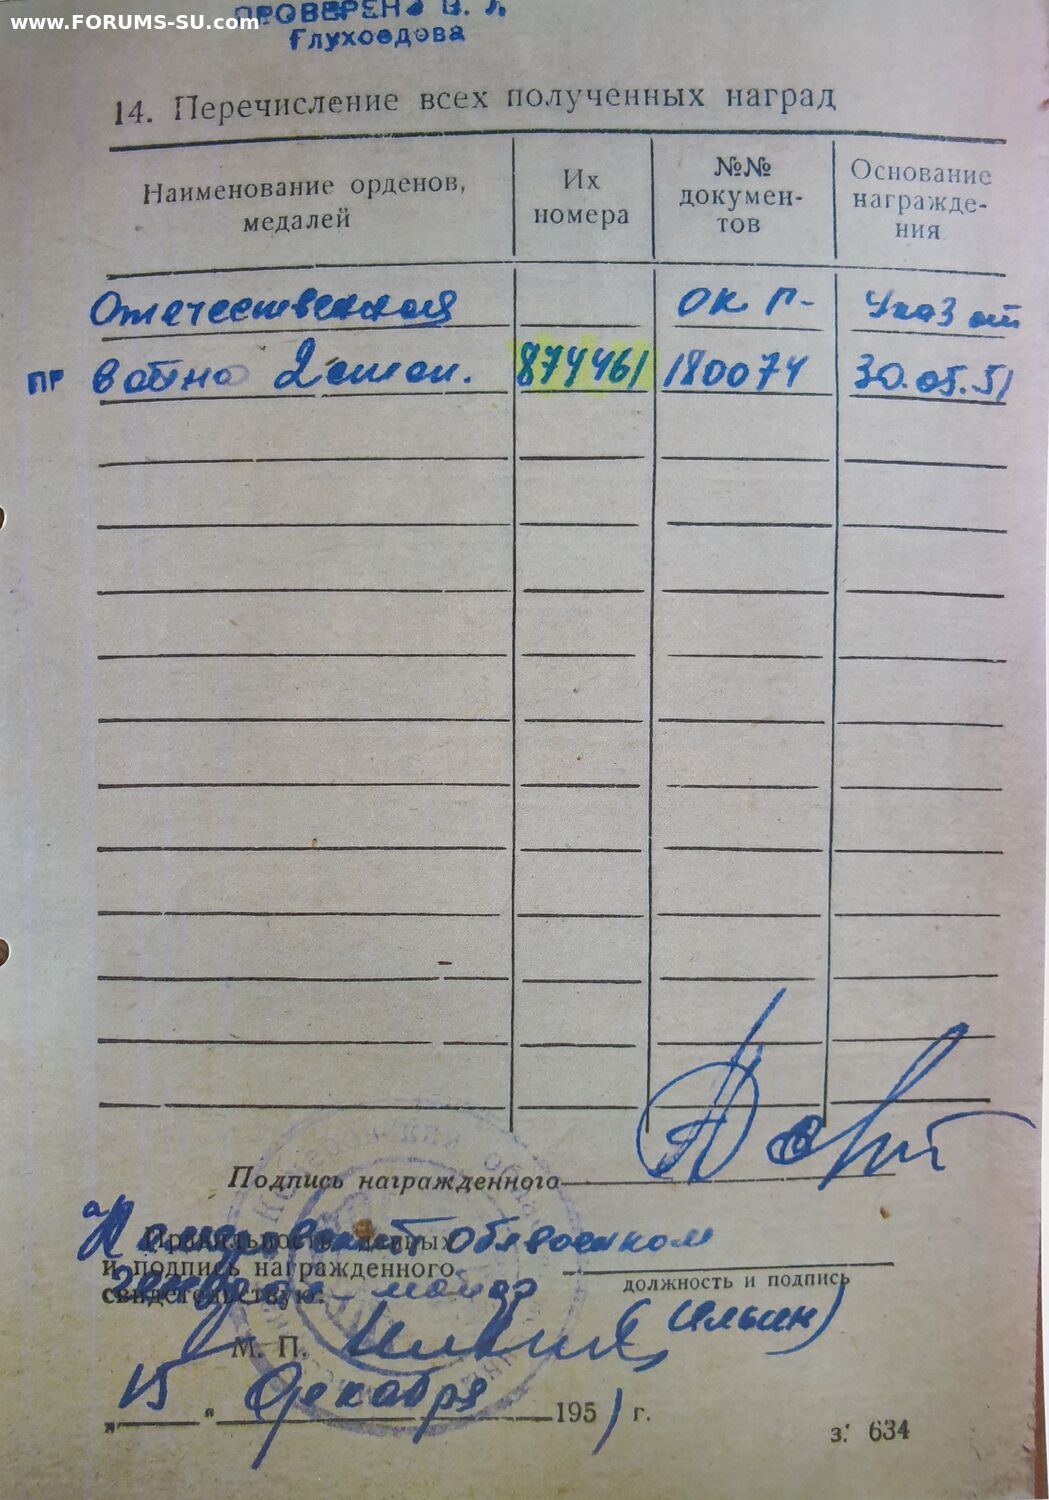 www.FORUMS-SU.com
ПРОВЕРЕНО В. Л
Глухоедова
14. Перечисление всех полученных наград
Наименование орденов, медалей
Их номера
№№ докумен-
тов
Основание
награжде-
ния
Отечественная
ОК П-
Указ от
ПР
войны 2 степ.
874461
180074
30.05.51
Подпись награжденного
облвоенком
Правильность данных
и подпись награжденного
свидетельствую:
майор
должность и подпись
М. П.
(Ильин)
„15“ декабря 1951 г.
з. 634